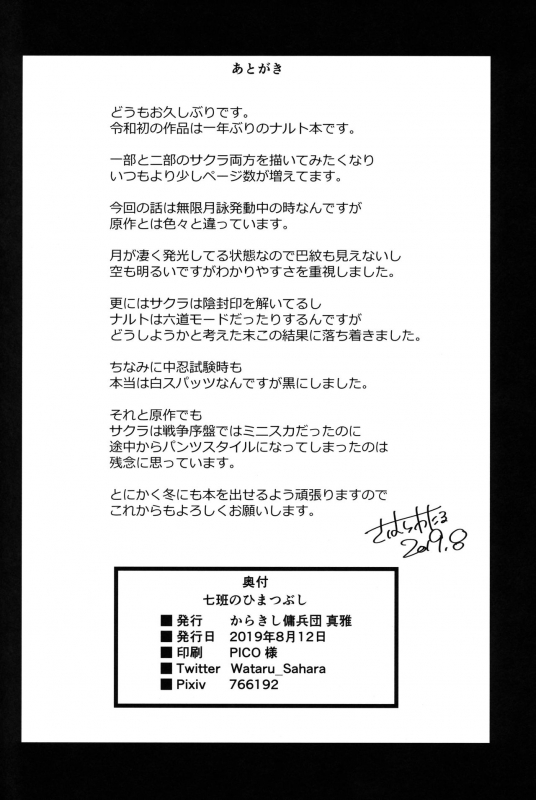 あとがき
どうもお久しぶりです。
令和初の作品は一年ぶりのナルト本です。
一部と二部のサクラ両方を描いてみたくなり
いつもより少しページ数が増えてます。
今回の話は無限月詠発動中の時なんですが
原作とは色々と違っています。
月が凄く発光してる状態なので巴紋も見えないし
空も明るいですがわかりやすさを重視しました。
更にはサクラは陰封印を解いてるし
ナルトは六道モードだったりするんですが
どうしようかと考えた末この結果に落ち着きました。
ちなみに中忍試験時も
本当は白スパッツなんですが黒にしました。
それと原作でも
サクラは戦争序盤ではミニスカだったのに
途中からパンツスタイルになってしまったのは
残念に思っています。
とにかく冬にも本を出せるよう頑張りますので
これからもよろしくお願いします。
さはらわたる
2019.8
奥付
七班のひまつぶし
■ 発行 からきし傭兵団 真雅
■ 発行日 2019年8月12日
■ 印刷 PICO 様
■ Twitter Wataru_Sahara
■ Pixiv 766192